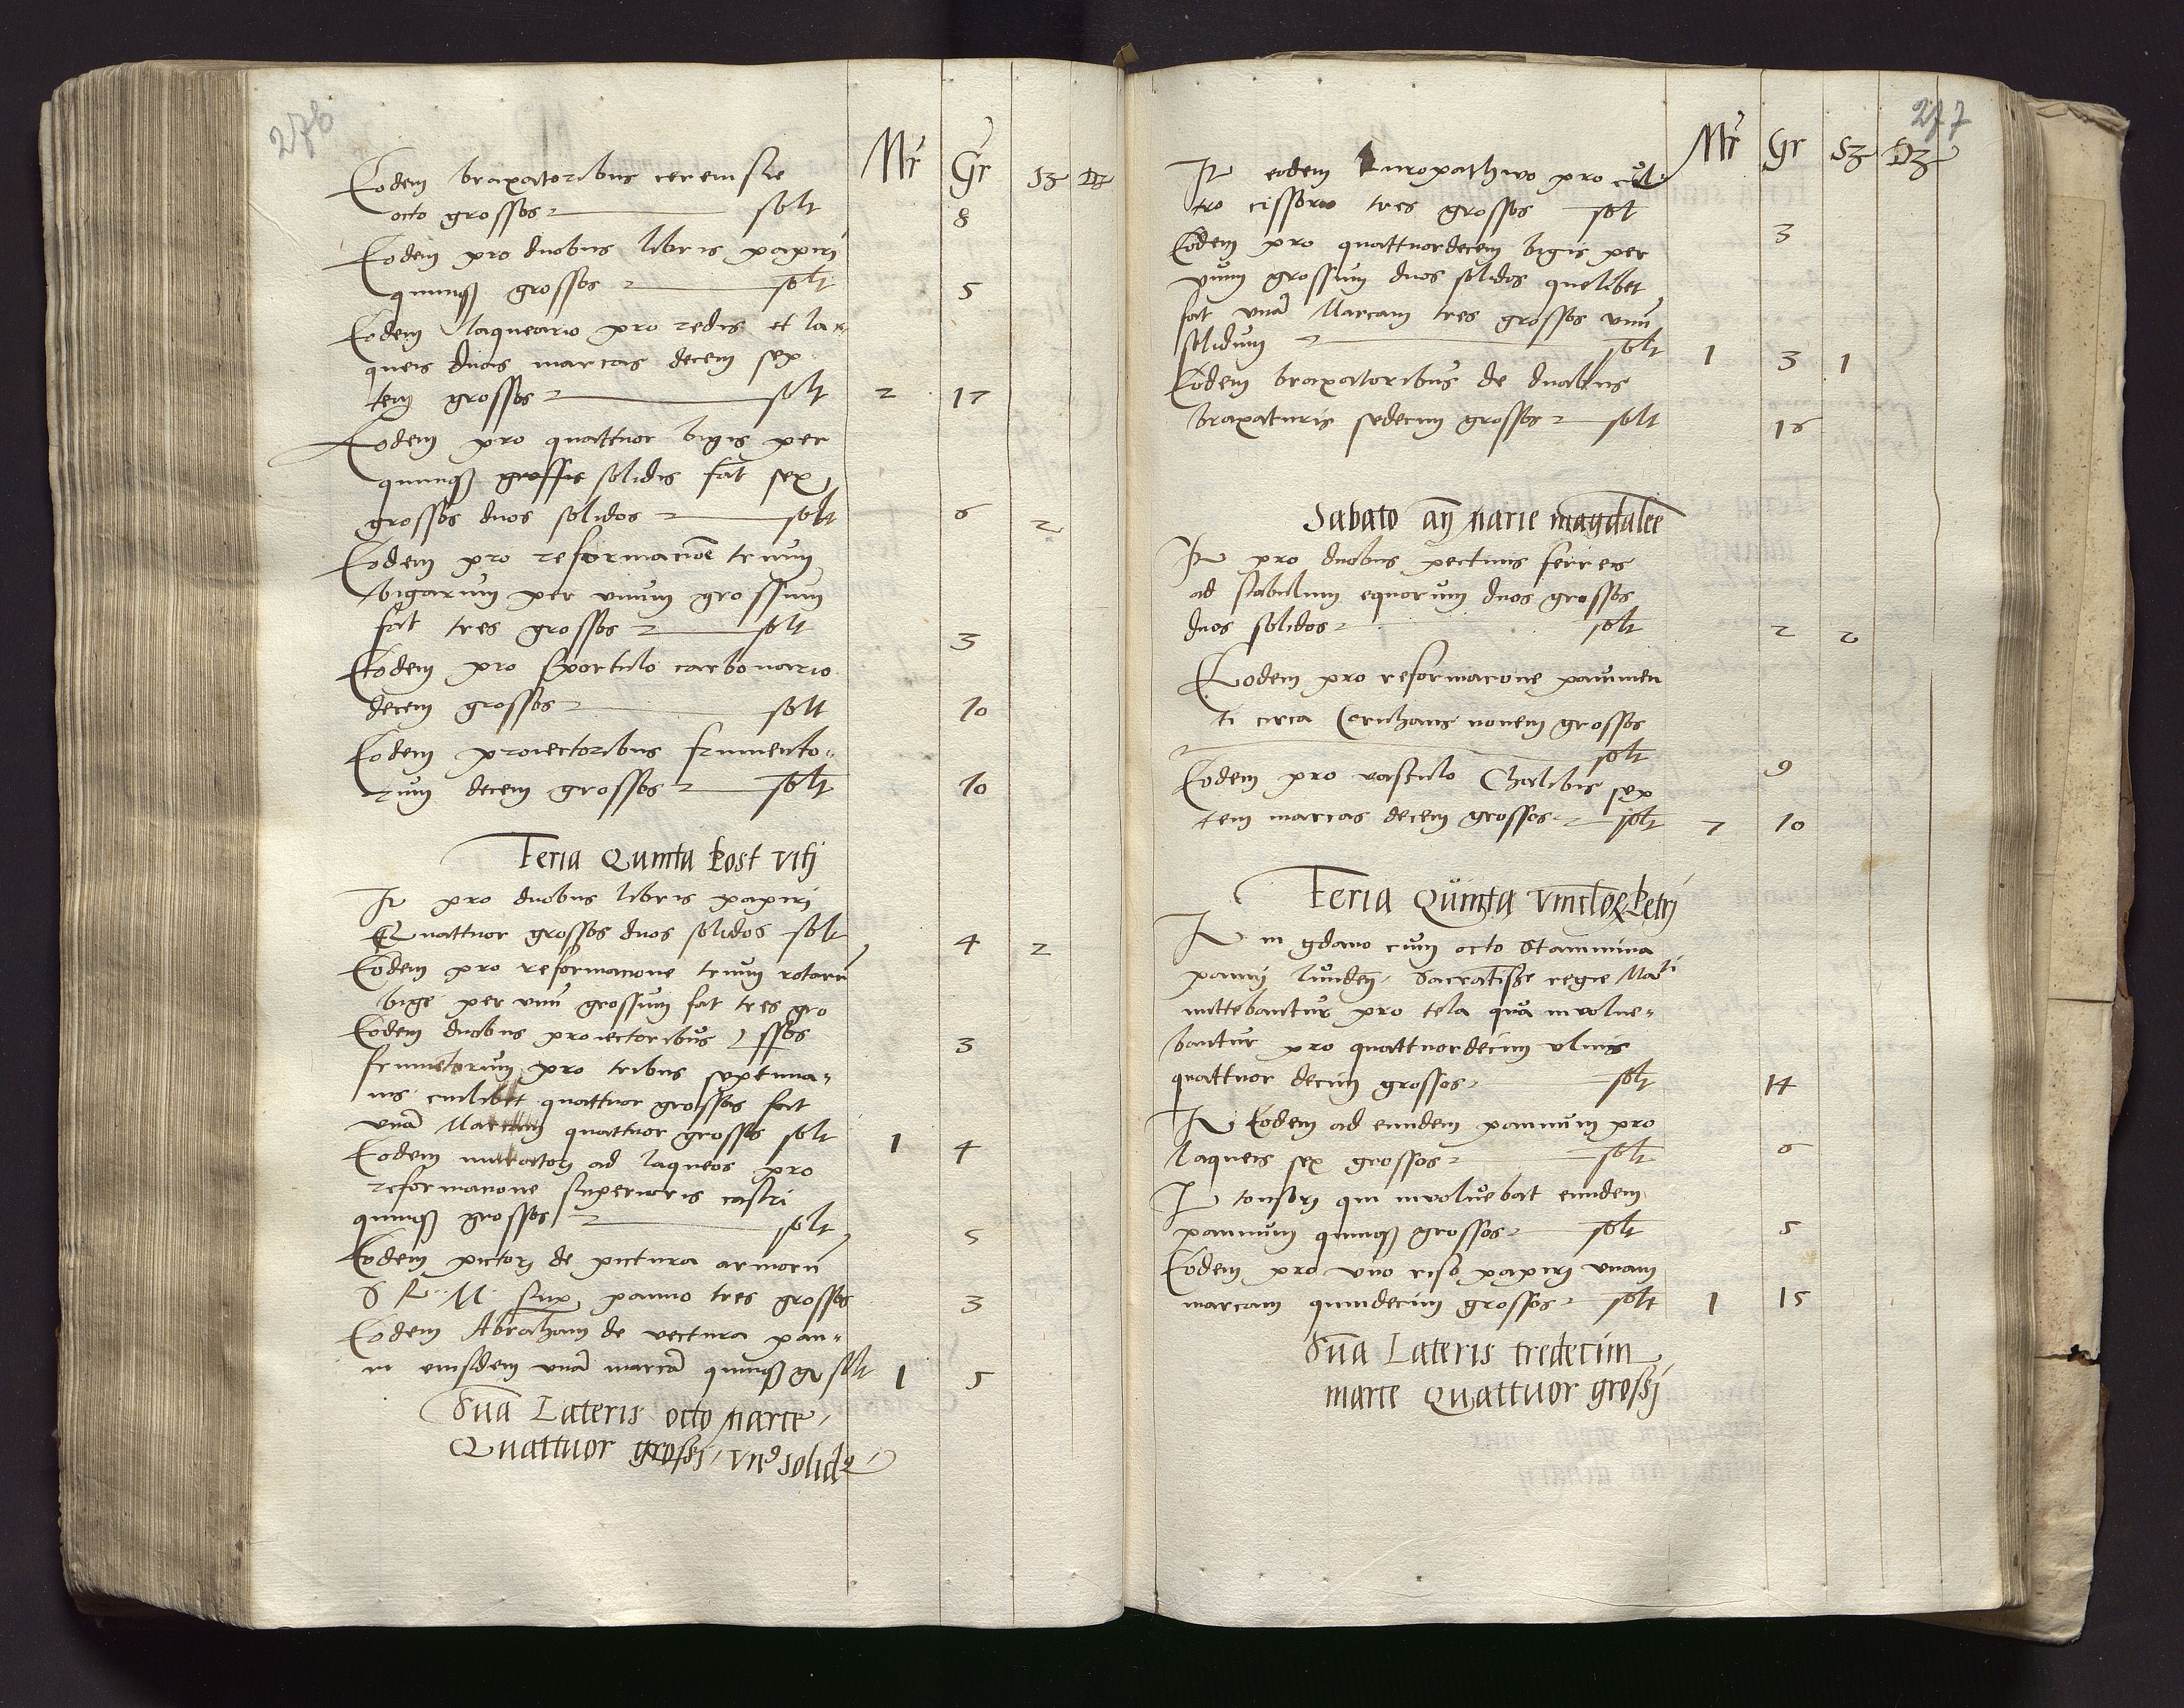 276
Mr Gr Sz Dz
Eodem braxatoribus cerevisie
octo grossos solt 8
Eodem pro duobus libris papiri
quinqz grossos solt 5
Eodem laqueario pro redis et la=
queis duas marcas decem sep
tem grossos solt 2 17
Eodem pro quattuor bigis per
quinqz grossis solidis fat sex
grossos duos solidos solt 6 2
Eodem pro reformacioe trium
bigarum per unum grossum
fat tres grossos solt 3
Eodem pro sportulo carbonario
decem grossos solt 10
Eodem proiectoribus frumento=
rum decem grossos solt 10
Feria Quinta Post Viti
It pro duobus libris papiri
Quattuor grossos duos solidos solt 4 2
Eodem pro reformacione trium rotaru
bige per unu grossum fat tres gro
Eodem duobus proiectoribus ssos 3
frumetorum pro tribus septima=
nis cuilibet quattuor grossos fat
una Marcam quattuor grossos solt 1 4
Eodem ad laqueos pro
reformacione superioris castri
quinqz grossos solt 5
Eodem pictori de pictura armoru
S R M sup panno tres grossos 3
Eodem Abraham de vectura pan=
ni eiusdem una marca quinqz gr solt 1 5
Sua Lateris octo marce
Quattuor grossi, un9 solid9
277
Mr Gr Sz Dz
It eodem pro cul=
tro cissorio tres grossos sol 3
Eodem pro quattuordecem bigis per
unum grossum duos solidos quelibet
fat una Marcam tres grossos unu
solidum solt 1 3 1
Eodem braxatoribus de duabus
braxaturis sedecim grossos solt 16
Sabato an Marie magdalee
It pro duobus pectinis ferreis
ad stabulum equorum duos grossos
duos solidos solt 2 2
Eodem pro reformacone pavimen
ti circa novem grossos
solt 9
Eodem pro vasculo Chalibis sep
tem marcas decem grossos solt 7 10
Feria Quinta Vinclor Petri
It in gdano cum octo stammina
panni lunden, Sacratisse regie Mati
mittebantur pro tela qua involue=
bantur pro quattuordecim ulnis
quattuor decim grossos solt 14
It Eodem ad eundem pannum pro
laqueis sex grossos solt 6
It tonsori qui involuebat eundem
pannum quinqz grossos solt 5
Eodem pro uno riso papiri unam
marcam quindecim grossos solt 1 15
Sua Lateris tredecim
marce Quattuor grossi